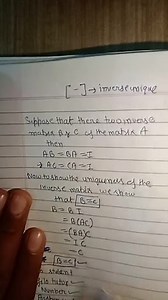 [-] → inverse unique
Suppose that there two inverse
matrix B & C of the matrix A
then
AB = BA = I
→ AC = CA = I
Now to show the uniqueness of the
inverse matrix we show
that [B=C]
B = BI
= B(AC)
= (BA)C
= IC
= C
[B=C]
student
Number